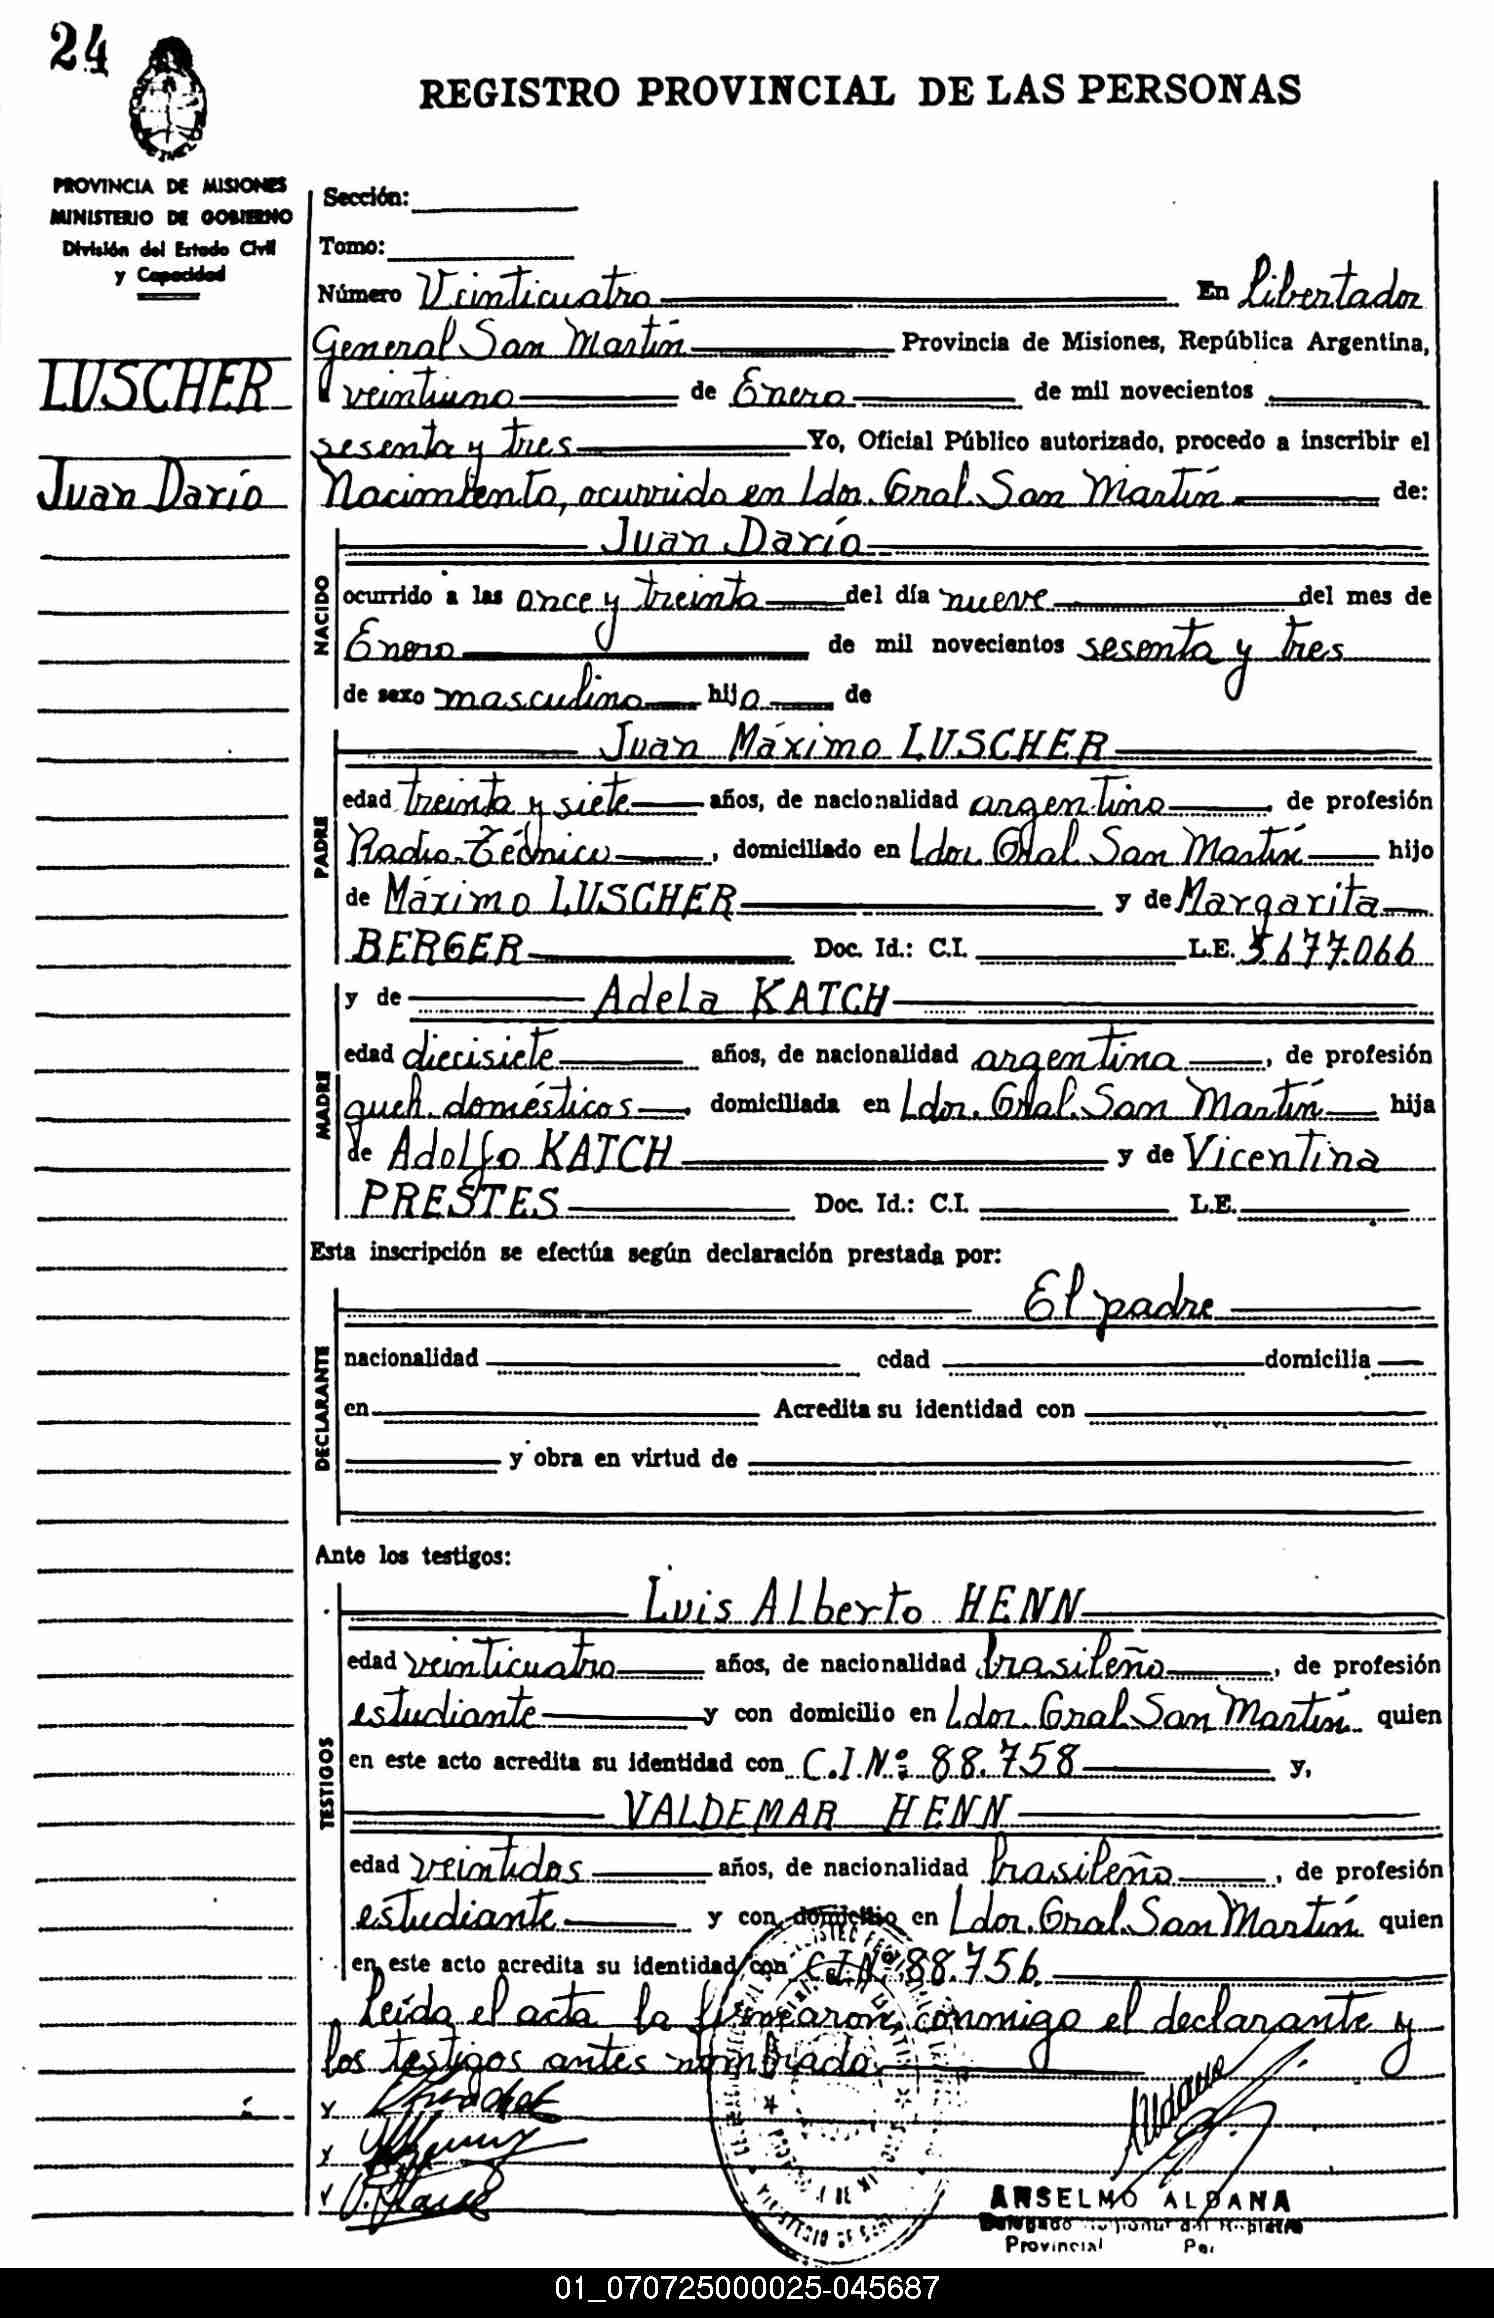 24
REGISTRO PROVINCIAL DE LAS PERSONAS
PROVINCIA DE MISIONES
MINISTERIO DE GOBIERNO
División del Estado Civil
y Capacidad
LUSCHER
Juan Darío
Sección:
Tomo:
Número Veinticuatro En Libertador
General San Martín Provincia de Misiones, República Argentina,
a veintiuno de Enero de mil novecientos
sesenta y tres Yo, Oficial Público autorizado, procedo a inscribir el
Nacimiento, ocurrido en Ldor. Gral San Martín de:
NACIDO
Juan Darío
ocurrido a las once y treinta del día nueve del mes de
Enero de mil novecientos sesenta y tres
de sexo masculino hijo de
PADRE
Juan Máximo LUSCHER
edad treinta y siete años, de nacionalidad argentino, de profesión
Radio-Técnico, domiciliado en Ldor. Gral San Martín hijo
de Máximo LUSCHER y de Margarita
BERGER Doc. Id.: C.I. L.E. 5.677.066
MADRE
y de Adela KATCH
edad diecisiete años, de nacionalidad argentina, de profesión
queh. domésticos, domiciliada en Ldor. Gral. San Martín hija
de Adolfo KATCH y de Vicentina
PRESTES Doc. Id.: C.I. L.E.
Esta inscripción se efectúa según declaración prestada por:
DECLARANTE
El padre
nacionalidad edad domicilia
en Acredita su identidad con
y obra en virtud de
Ante los testigos:
TESTIGOS
Luis Alberto HENN
edad veinticuatro años, de nacionalidad brasileño, de profesión
estudiante y con domicilio en Ldor. Gral San Martín quien
en este acto acredita su identidad con C.I.Nº 88.758 y,
VALDEMAR HENN
edad veintidos años, de nacionalidad brasileño, de profesión
estudiante y con domicilio en Ldor. Gral. San Martín quien
en este acto acredita su identidad con C.I.Nº 88.756.
Leída el acta la firmaron conmigo el declarante y
los testigos antes nombrado.
ANSELMO ALDANA
Delegado del Registro
Provincial Per
01_070725000025-045687